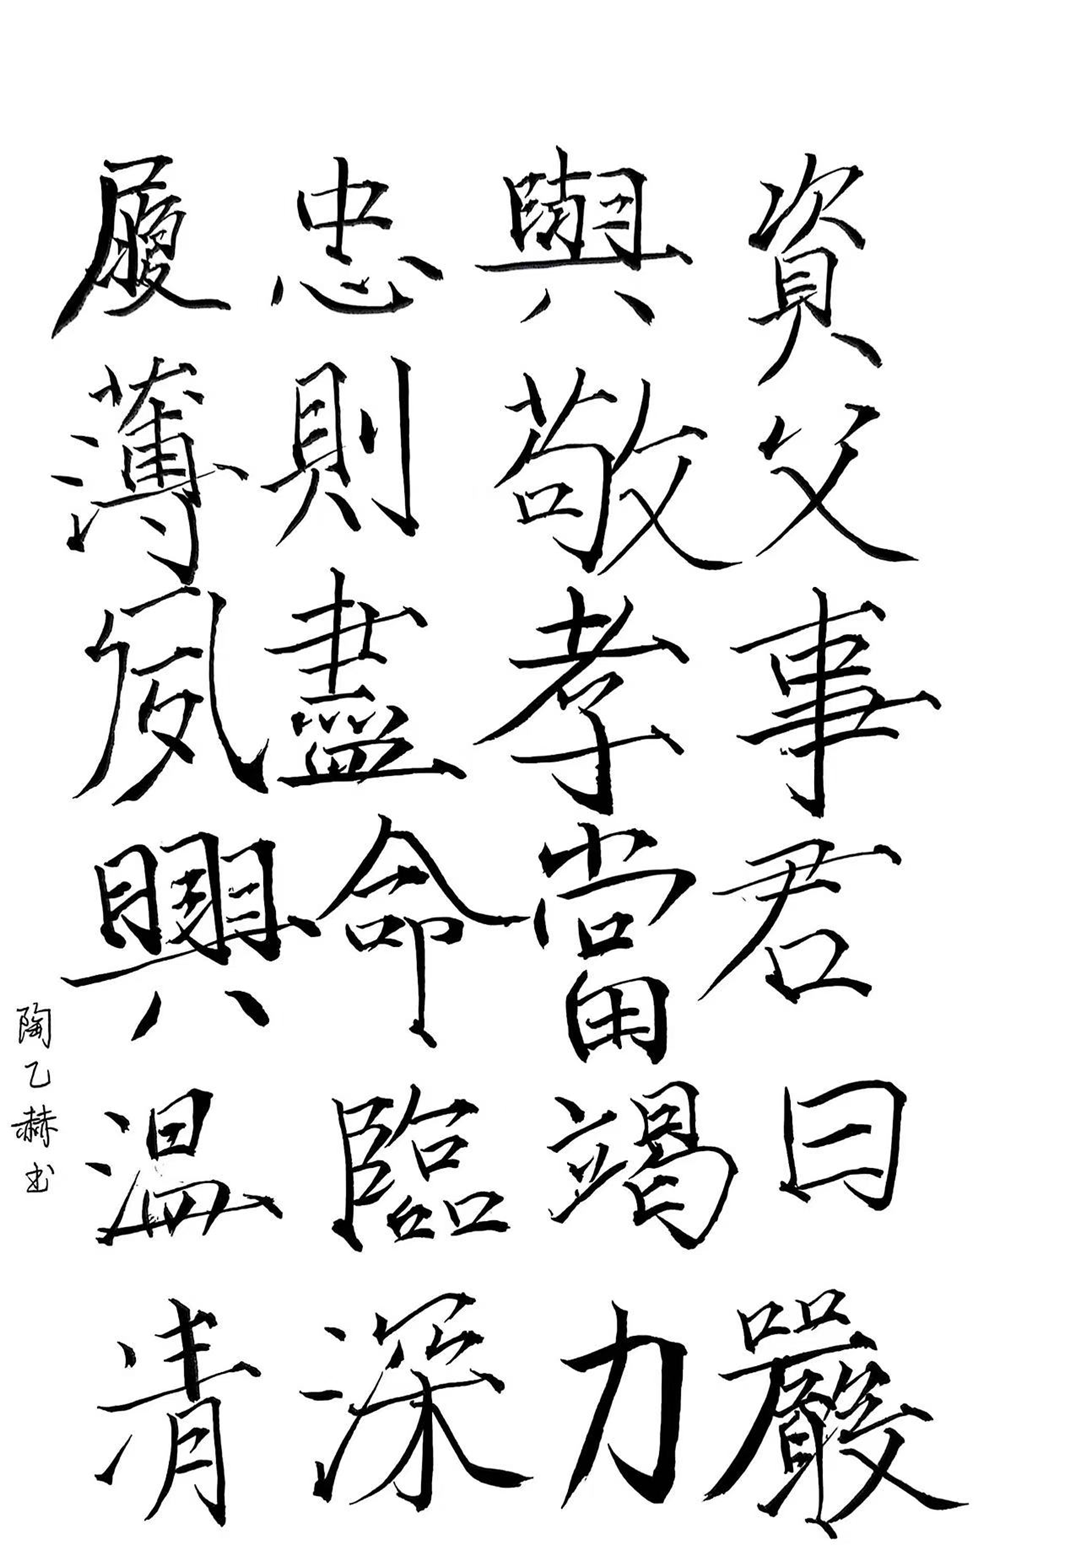 資父事君曰嚴
與敬孝當竭力
忠則盡命臨深
履薄夙興温凊
陶乙赫书